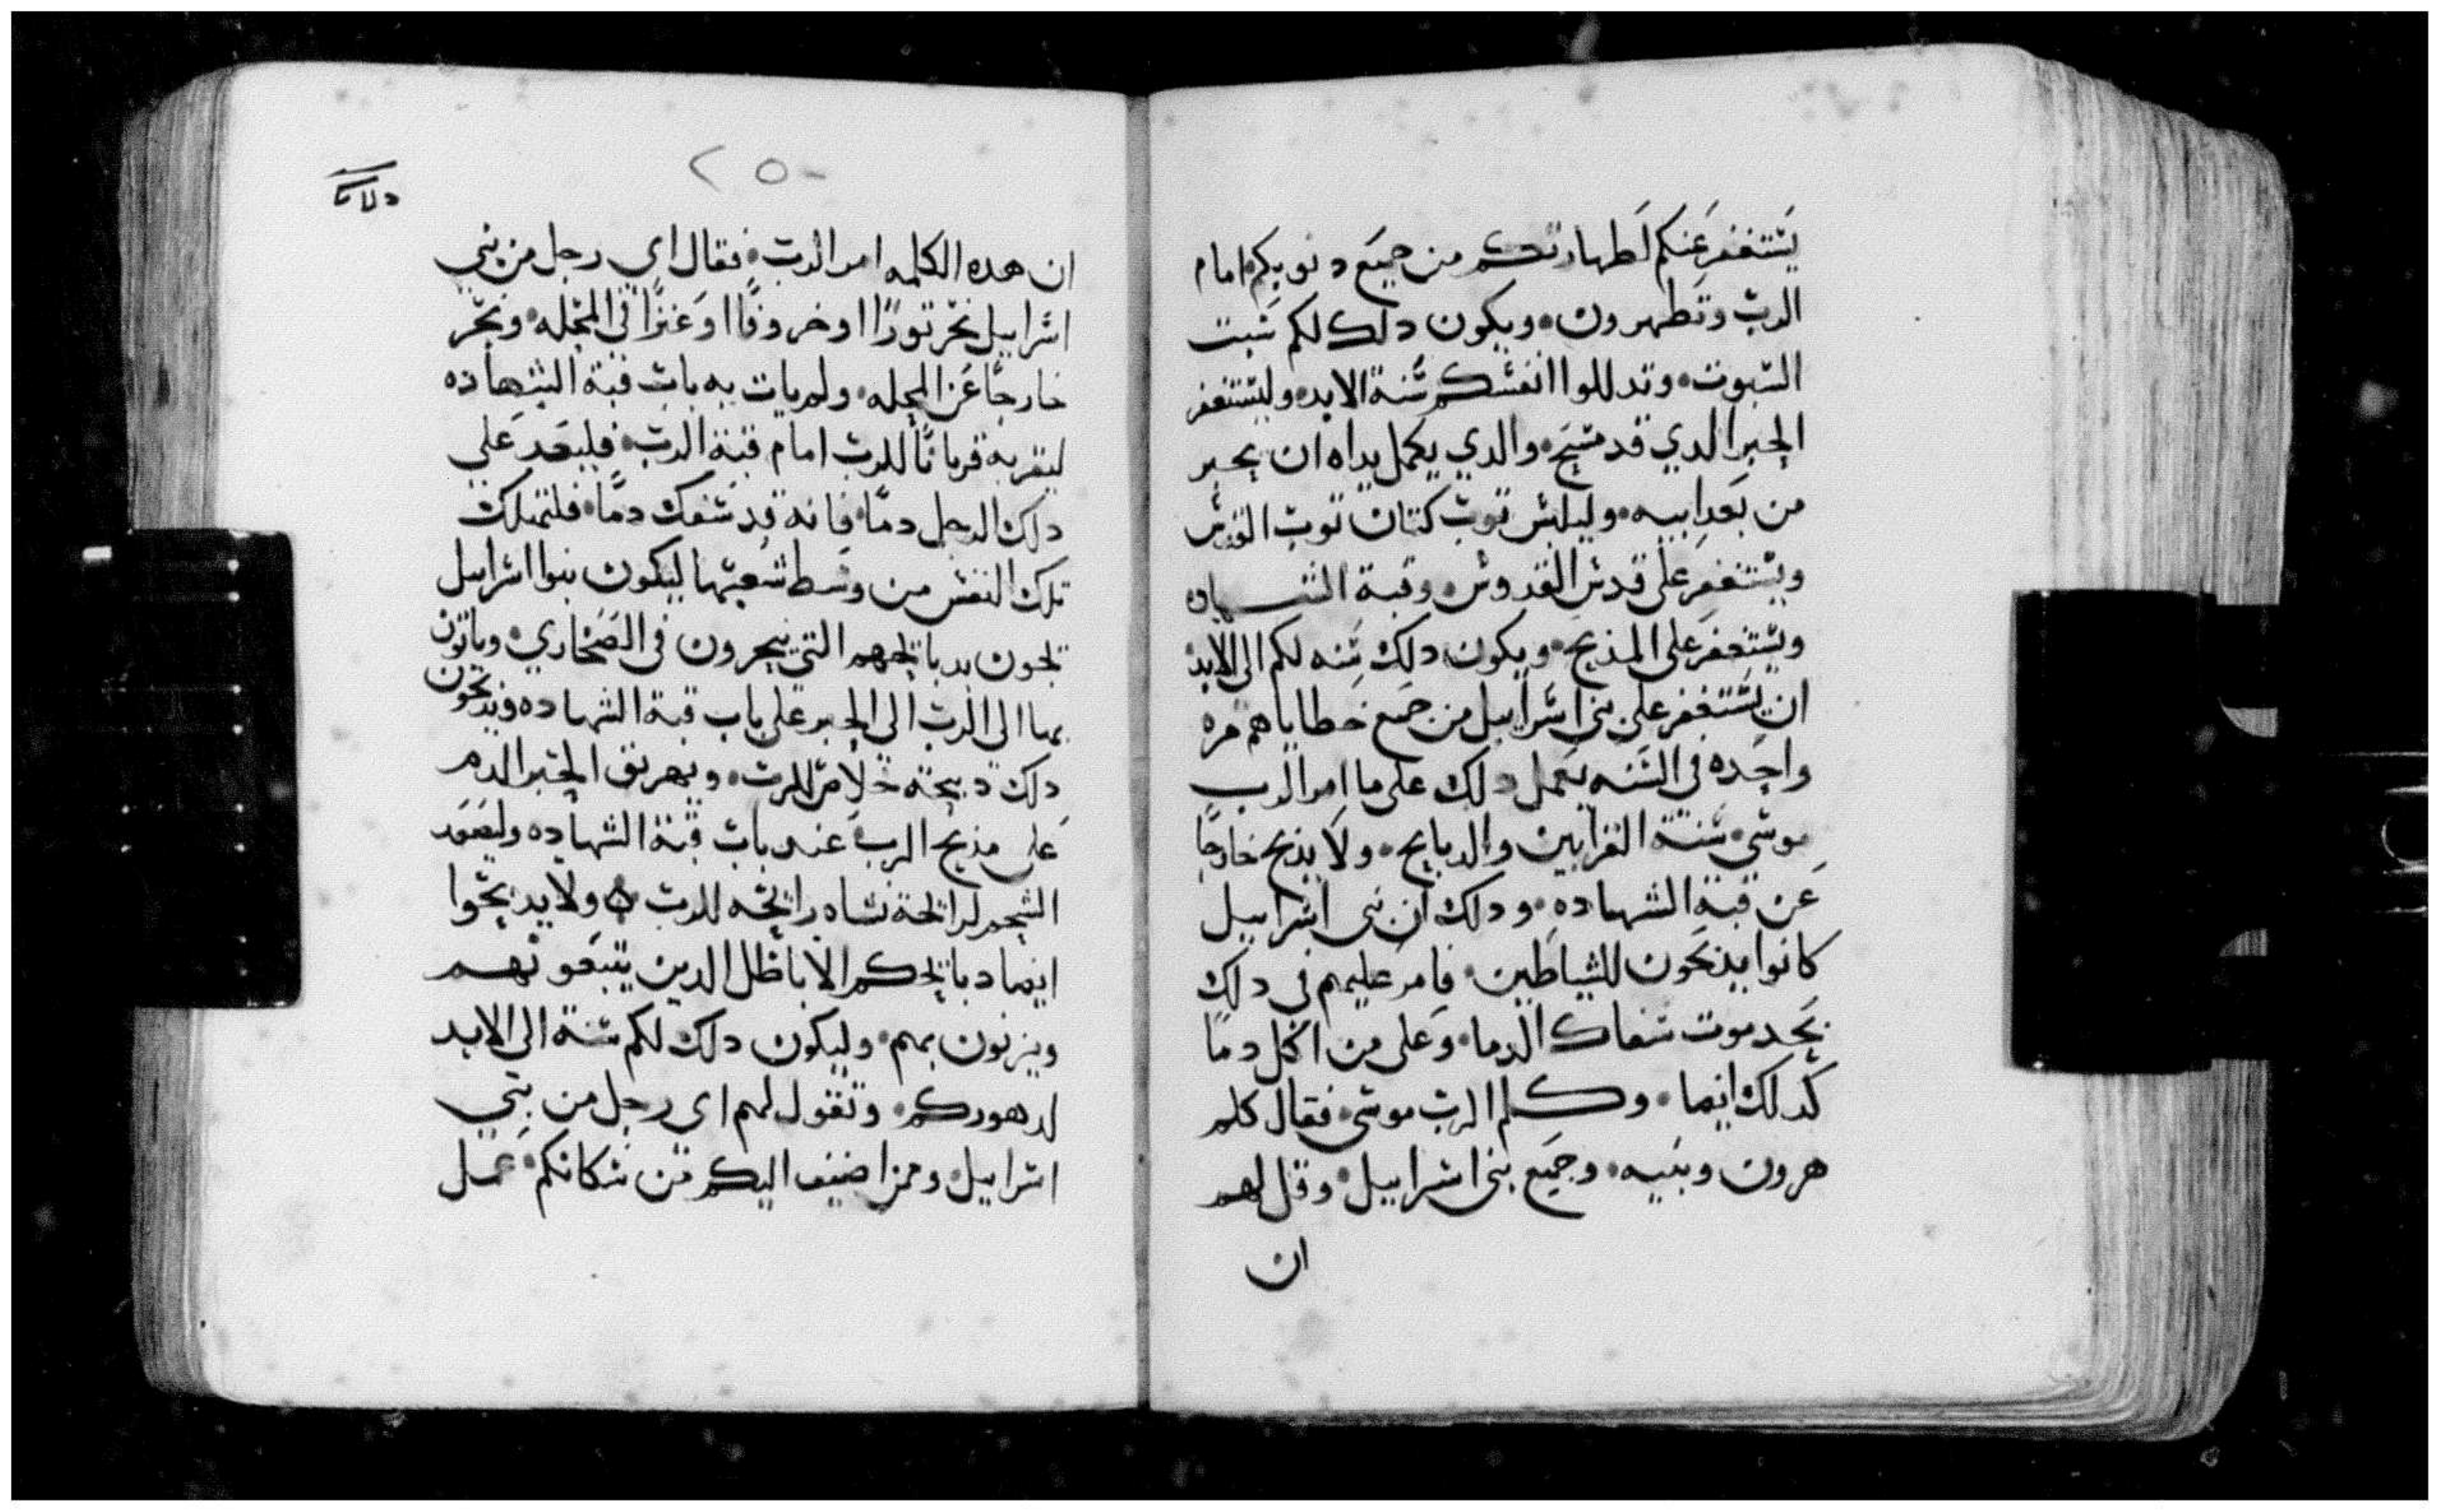 يستغفر عنكم لطهارتكم من جميع دنوبكم امام
الرب وتطهرون ويكون دلك لكم سبت
السبوت وتدللوا انفسكم سنة الابد وليستغفر
الحبر الدي قد مسح والدي يكمل يداه ان يحبر
من بعد ابيه وليلبس توب كتان توب القدس
ويستغفر على قدس القدوس وقبة الشهاده
ويستغفر على المذبح ويكون دلك سنه لكم الى الابد
ان يستغفر على بني اسراييل من جميع خطاياهم مره
واحده في السنه يعمل دلك على ما امر الرب
موسى سنة القرابين والدبايح ولا يذبح خارجا
عن قبة الشهاده ودلك ان بني اسراييل
كانوا يذبحون للشياطين فامر عليهم في دلك
بحد موت سفاك الدما وعلى من اكل دما
كدلك ايضا وكلم الرب موسى فقال كلم
هرون وبنيه وجميع بني اسراييل وقل لهم
ان
٢٥٠
ان هده الكلمه امر الرب فقال اي رجل من بني
اسراييل نحر تورًا او خروفًا او عنزًا في المحله ونحر
خارجًا عن المحله ولم يات به باب قبة الشهاده
ليقربه قربانًا للرب امام قبة الرب فليعد على
دلك الرجل دمًا فانه قد سفك دمًا فلتهلك
تلك النفس من وسط شعبها ليكون بنوا اسراييل
يجون بدبايحهم التي ينحرون في الصحاري وياتون
بها الى الرب الى الحبر على باب قبة الشهاده ويذبحون
دلك دبيحة خلاص للرب ويهريق الحبر الدم
على مذبح الرب عند باب قبة الشهاده وليصعد
الشحم لرائحة نشاه رائحه للرب ولا يدبحوا
ايضا دبايحكم الاباطل الدين يتبعونهم
ويزنون بهم وليكون دلك لكم سنة الى الابد
لدهوركم وتقول لهم اي رجل من بني
اسراييل وممن اضيف اليكم من سكانكم عمل